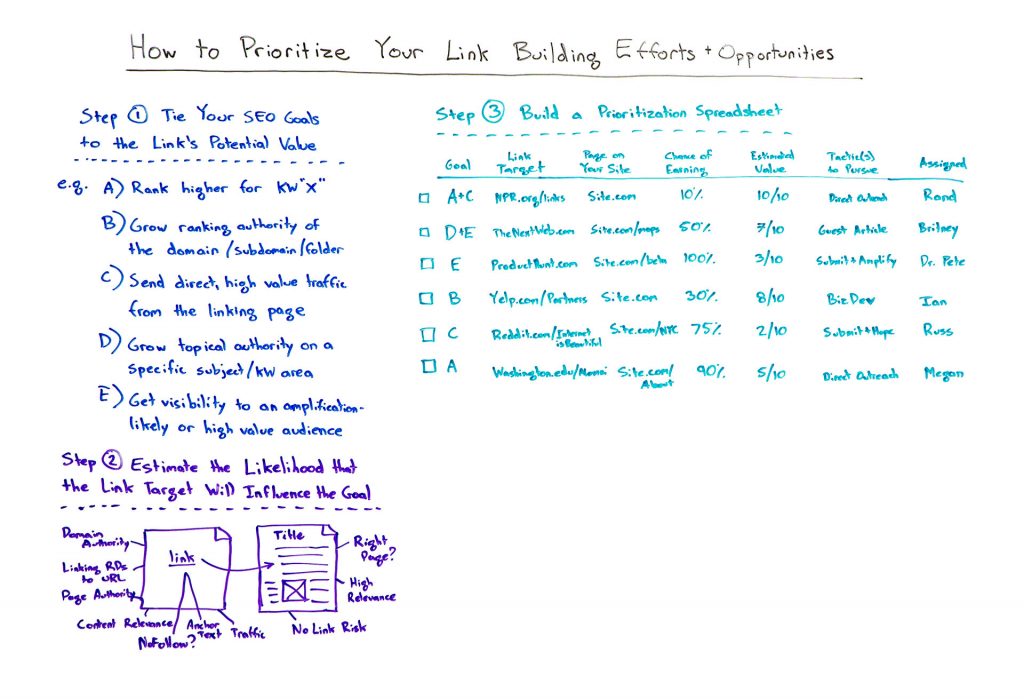 How to Prioritize Your Link Building Efforts + Opportunities
Step 1 Tie Your SEO Goals
to the Link's Potential Value
e.g. A) Rank higher for KW "X"
B) Grow ranking authority of
the domain/subdomain/folder
C) Send direct, high value traffic
from the linking page
D) Grow topical authority on a
specific subject/KW area
E) Get visibility to an amplification-
likely or high value audience
Step 2 Estimate the Likelihood that
the Link Target Will Influence the Goal
Domain
Authority
Linking RDs
to URL
Page Authority
Content Relevance
NoFollow?
Anchor
Text
Traffic
link
Title
Right
Page?
High
Relevance
No Link Risk
Step 3 Build a Prioritization Spreadsheet
Goal Link Target Page on Your Site Chance of Earning Estimated Value Tactic(s) to Pursue Assigned
A+C NPR.org/links Site.com 10% 10/10 Direct Outreach Rand
D+E TheNextWeb.com Site.com/maps 50% 7/10 Guest Article Britney
E ProductHunt.com Site.com/beta 100% 3/10 Submit + Amplify Dr. Pete
B Yelp.com/Partners Site.com 30% 8/10 BizDev Ian
C Reddit.com/InternetisBeautiful Site.com/NYC 75% 2/10 Submit + Hope Russ
A Washington.edu/ Site.com/About 90% 5/10 Direct Outreach Megan